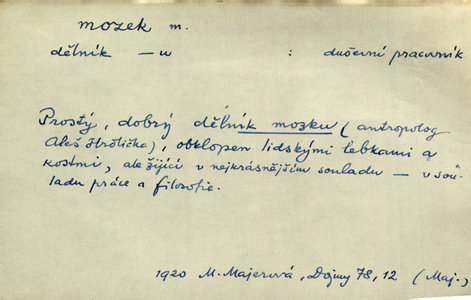 mozek m.
dělník — u : duševní pracovník
Prostý, dobrý dělník mozku (antropolog
Aleš Hrdlička), obklopen lidskými lebkami a
kostmi, ale žijící v nejkrásnějším souladu — v sou-
ladu práce a filosofie.
1920 M. Majerová, Dojmy 78, 12 (Maj.)